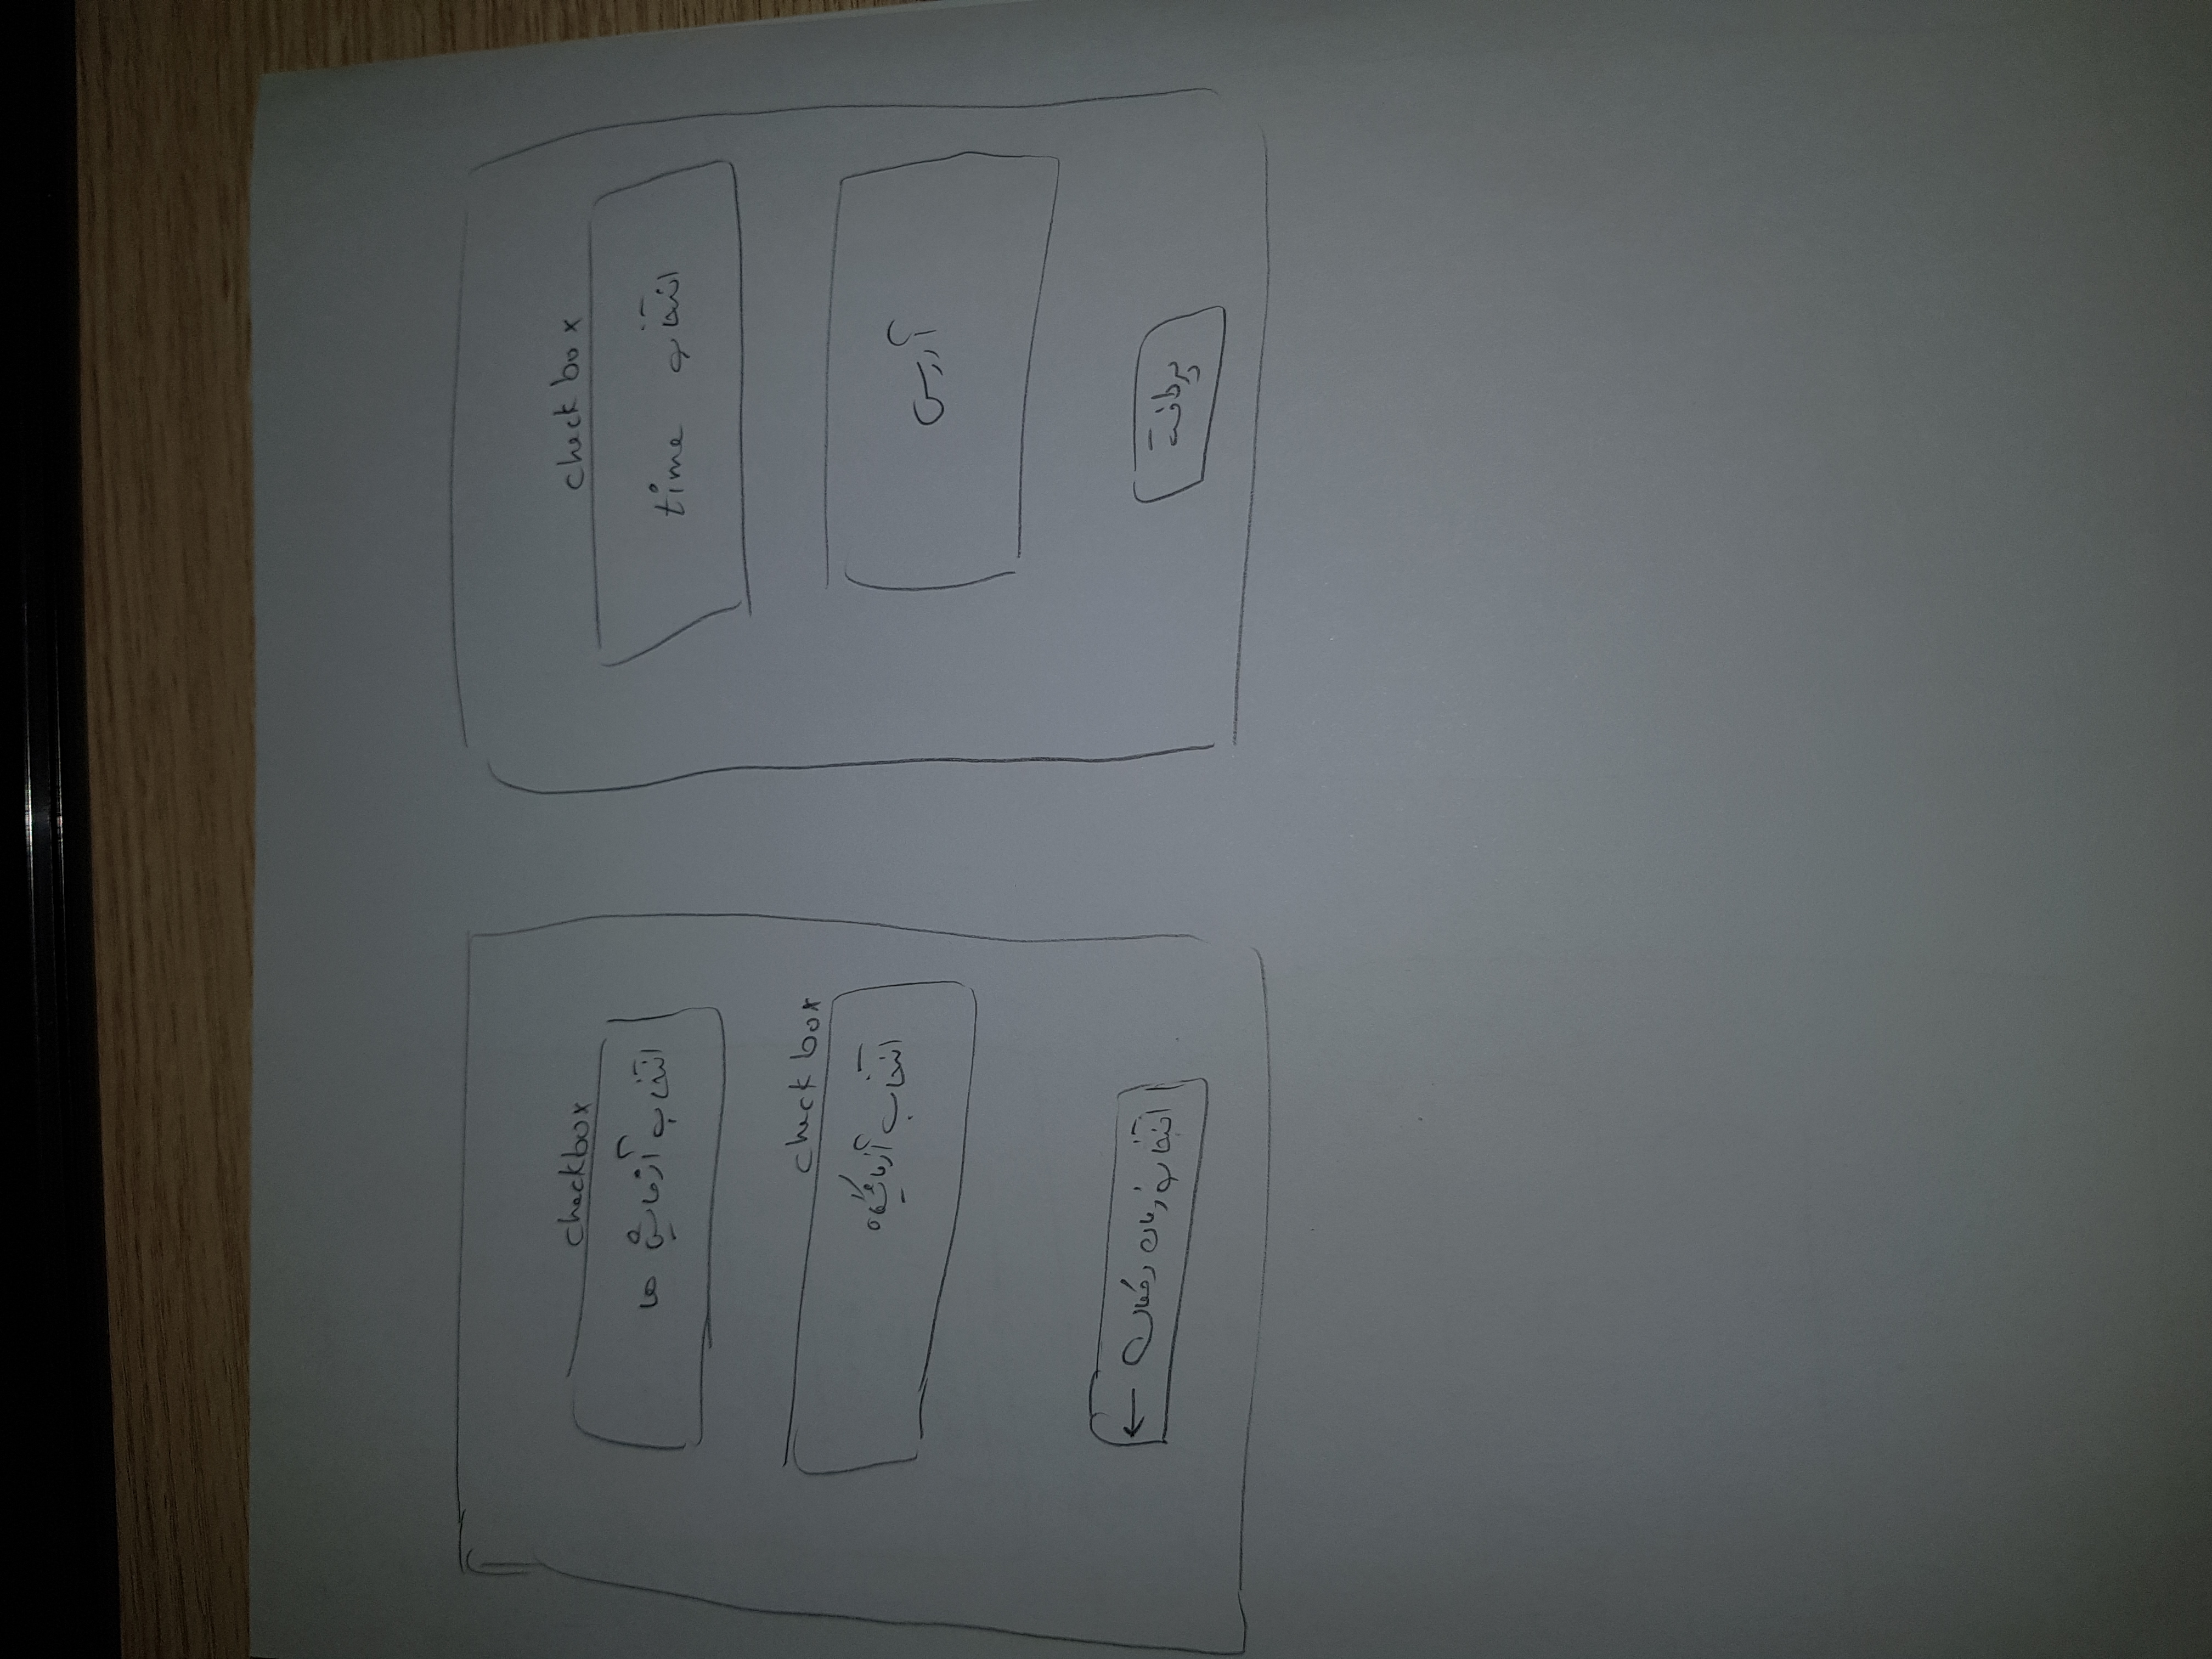 checkbox
انتخاب آزمایش ها
check box
انتخاب آزمایشگاه
انتخاب زمان و مکان ←
check box
انتخاب time
آدرس
پرداخت